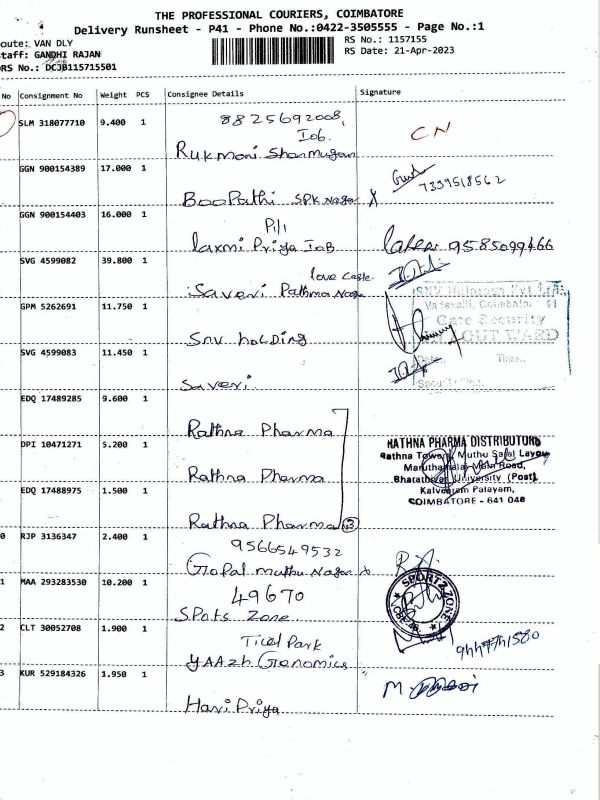 THE PROFESSIONAL COURIERS, COIMBATORE
Delivery Runsheet - P41 - Phone No.:0422-3505555 - Page No.:1
oute: VAN DLY
RS No.: 1157155
taff: GANDHI RAJAN
RS Date: 21-Apr-2023
RS No.: DCJB115715501
No Consignment No Weight PCS Consignee Details Signature
SLM 318077710 9.400 1 8825692008,
IoB.
Rukmani Shanmugam
CN
GGN 900154389 17.000 1
Boopathi SPK Nagar
7339518562
GGN 900154403 16.000 1
laxmi Priya IoB
9585099466
SVG 4599082 39.800 1
love Castle
Saveri Pathma Nagar
GPM 5262691 11.750 1
Snv holding
Gate Security
OUT WARD
Time..
SVG 4599083 11.450 1
Saveri.
EDQ 17489285 9.600 1
Rathna Pharma
DPI 10471271 5.200 1
Rathna Pharma
RATHNA PHARMA DISTRIBUTORS
Rathna Towers, Muthu Salai Layou
Maruthamalai Main Road,
Bharathiyar University (Post),
Kalveeram Palayam,
COIMBATORE - 641 046
EDQ 17488975 1.500 1
Rathna Pharma 3
0 RJP 3136347 2.400 1 9566549532
Gopal Muthu Nagar
1 MAA 293283530 10.200 1 49670
Spots Zone
SPORTZ ZONE
2 CLT 30052708 1.900 1 Ticel Park
YAAzh Genomics
3 KUR 529184326 1.950 1
Hari Priya